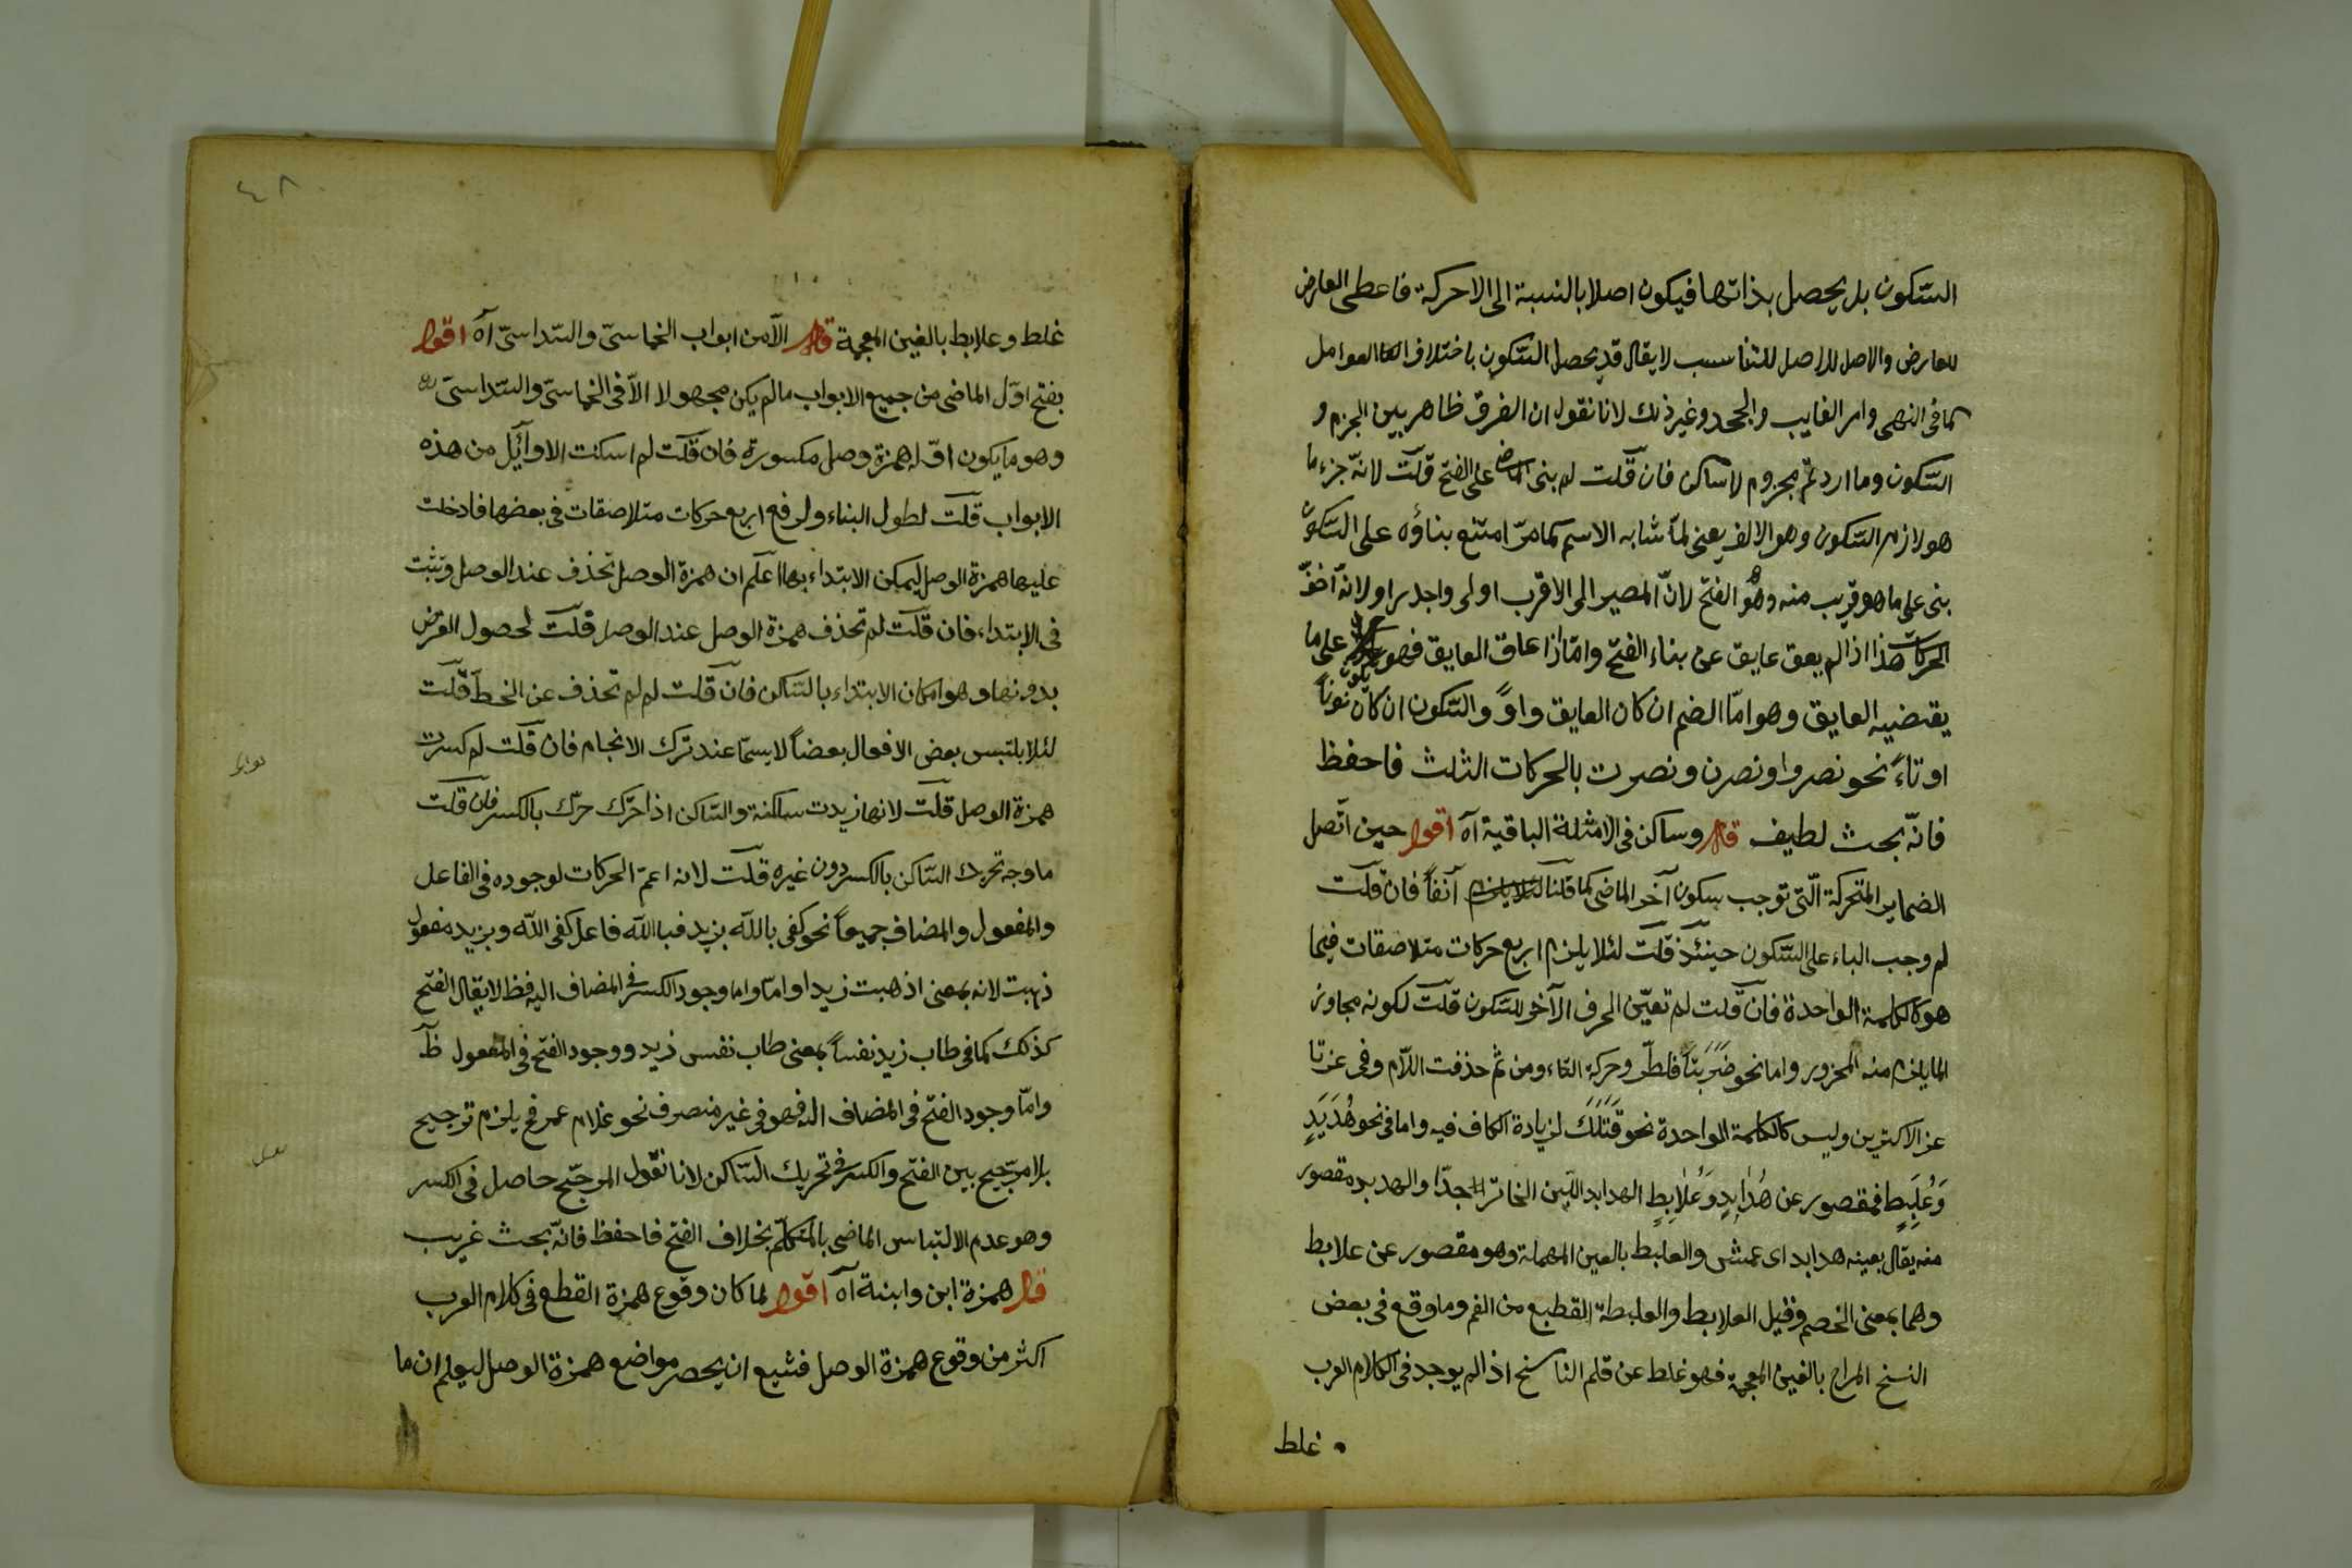 السّكون بل يحصل بذاتها فيكون اصلا بالنسبة الى الاحركة فاعطى العارض
للعارض والاصل للاصل للتناسب لا يقال قد يحصل السّكون باختلاف العوامل
كما فى النهى وامر الغايب والجحد وغير ذلك لانا نقول ان الفرق ظاهر بين الجزم و
السّكون وما اردتم مجزوم لا ساكن فان قلت لم بنى الماضى على الفتح قلت لانّه جزء ما
هو لازم السّكون وهو الالف يعنى لمّا شابه الاسم كما مرّ امتنع بناؤه على السّكون
بنى على ما هو قريب منه وهو الفتح لانّ المصير الى الاقرب اولى واجدر او لانّه اخفّ
الحركات هذا اذا لم يعق عايق عن بناء الفتح وامّا اذا عاق العايق فهو على ما
يقتضيه العايق وهو امّا الضم ان كان العايق واوًا والسّكون ان كان نونًا
او تاءً نحو نصروا ونصرن ونصرت بالحركات الثلث فاحفظ
فانّه بحث لطيف قال وساكن فى الامثلة الباقية آه اقول حين اتّصل
الضماير المتحركة الّتى توجب سكون آخر الماضى كما قلنا آنفاً فان قلت
لم وجب البناء على السّكون حينئذ قلت لئلا يلزم اربع حركات متلاصقات فيما
هو كالكلمة الواحدة فان قلت لم تعيّن الحرف الآخر للسّكون قلت لكونه مجاور
لما يلزم منه المحزور واما نحو ضَرَبَتَا فلطرّو حركة التاء ومن ثم حذفت اللّام وفى غزتا
عند الاكثرين وليس كالكلمة الواحدة نحو قَتَلَكَ لزيادة الكاف فيه واما فى نحو هُدَبِدٍ
وَعُلَبِطٍ فمقصور عن هُدَابِدٍ وَعُلَابِطٍ الهدابد اللّبن الخاثر جدّا والهدبد مقصور
منه يقال بعينه هدابد اى عمش والعلبط بالعين المهملة وهو مقصور عن علابط
وهما بمعنى الضخم وقيل العلابط والعلبطة القطيع من الغنم وما وقع فى بعض
النسخ المراح بالغين المعجمة فهو غلط عن قلم الناسخ اذ لم يوجد فى الكلام العرب
غلط
٤٨
غلط وعلابط بالغين المعجمة قال الّا من ابواب الخماسىّ والسّداسىّ آه اقول
يفتح اوّل الماضى من جميع الابواب ما لم يكن مجهولا الّا فى الخماسىّ والسّداسىّ
وهو ما يكون اوّله همزة وصل مكسورة فان قلت لم اسكنت الاوآئل من هذه
الابواب قلت لطول البناء ولرفع اربع حركات متلاصقات فى بعضها فادخلت
عليها همزة الوصل ليمكن الابتداء بها اعلم ان همزة الوصل تحذف عند الوصل وتثبت
فى الابتداء فان قلت لم تحذف همزة الوصل عند الوصل قلت لحصول الغرض
بدونها وهو امكان الابتداء بالسّاكن فان قلت لم لم تحذف عن الخط قلت
لئلا يلتبس بعض الافعال بعضاً لا سيمّا عند ترك الاعجام فان قلت لم كسرت
همزة الوصل قلت لانها زيدت ساكنة والسّاكن اذا حرّك حرّك بالكسر فان قلت
ما وجه تحريك السّاكن بالكسر دون غيره قلت لانه اعمّ الحركات لوجوده فى الفاعل
والمفعول والمضاف جميعاً نحو كفى بالله بزيد فبالله فاعل كفى الله وبزيد مفعول
ذهبت لانه بمعنى اذهبت زيدا وامّا وجود الكسر فى المضاف اليه فظ لا يقال الفتح
كذلك كما فى طاب زيد نفساً بمعنى طاب نفس زيد ووجود الفتح فى المفعول ظ
وامّا وجود الفتح فى المضاف اليه فهو فى غير منصرف نحو غلام عمر فح يلزم ترجيح
بلا مرجّح بين الفتح والكسر فى تحريك السّاكن لانا نقول المرجّح حاصل فى الكسر
وهو عدم الالتباس الماضى بالمتكلّم بخلاف الفتح فاحفظ فانّه بحث غريب
قال همزة ابن وابنة آه اقول لما كان وقوع همزة القطع فى كلام العرب
اكثر من وقوع همزة الوصل فشيع ان يحصر مواضع همزة الوصل ليعلم ان ما